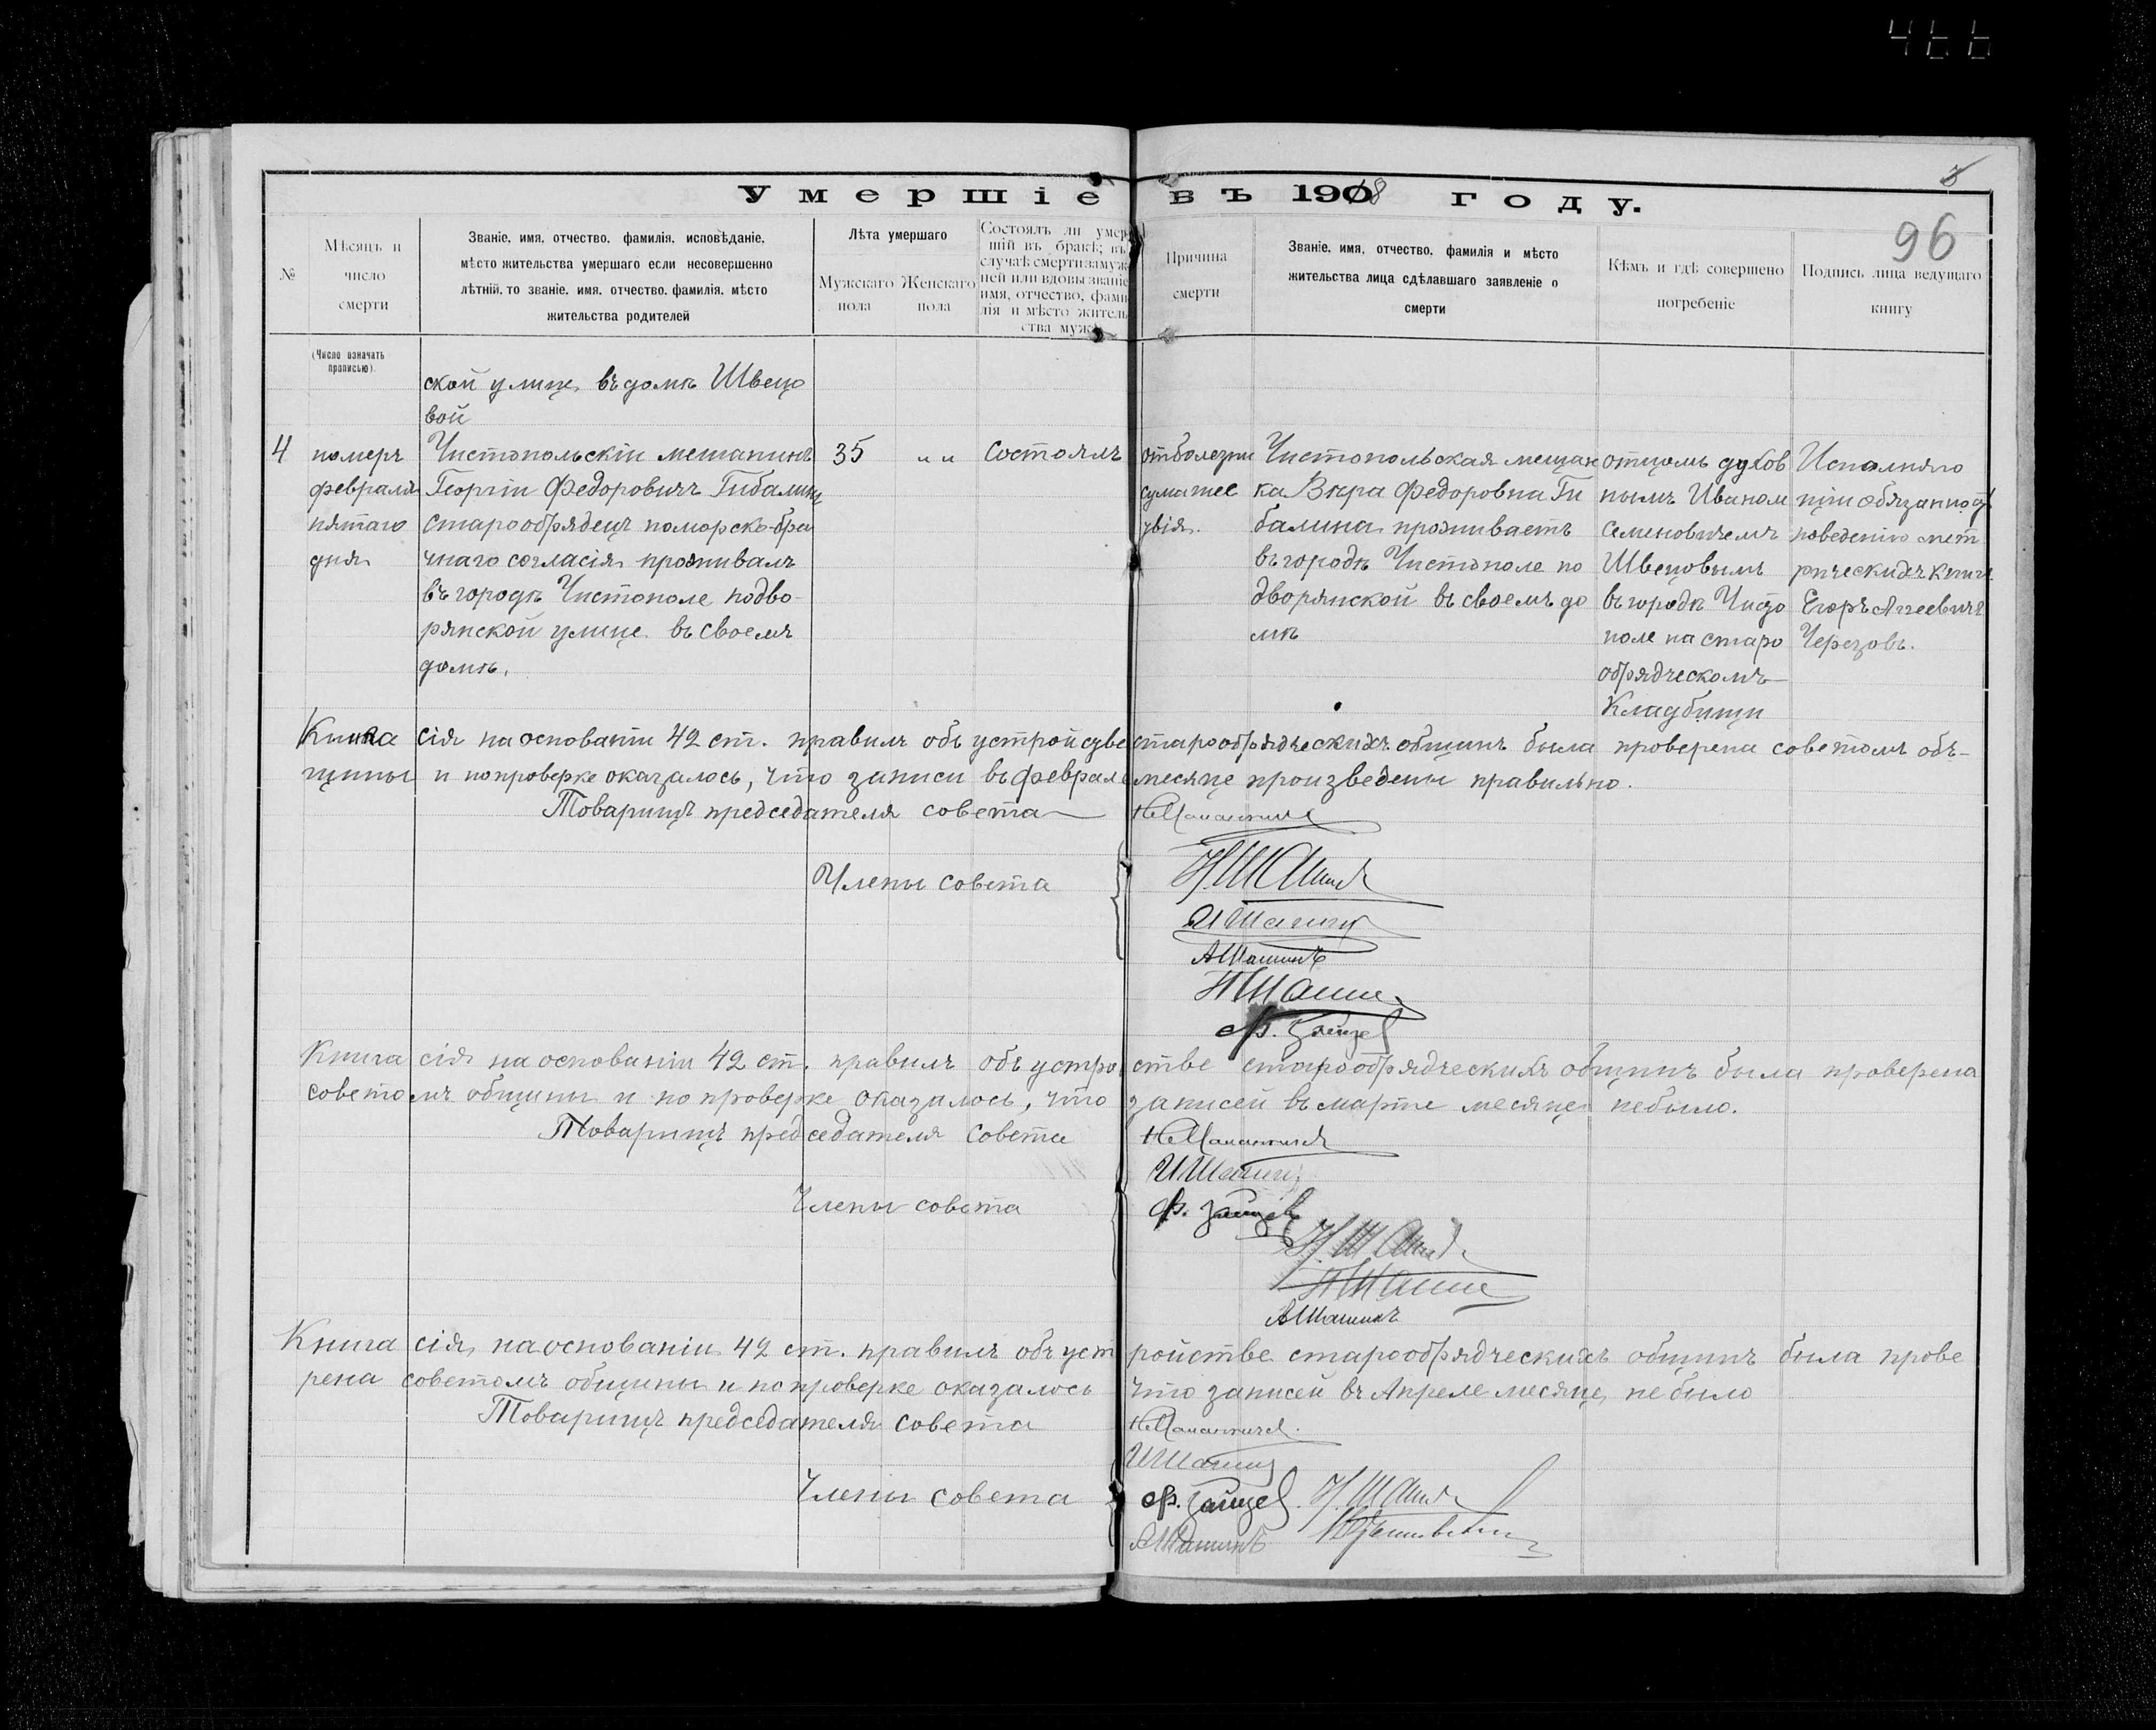 96
Умершіе въ 1918 году.
№
Мѣсяцъ и
число
смерти
Званіе, имя, отчество, фамилія, исповѣданіе,
мѣсто жительства умершаго если несовершенно
лѣтній, то званіе, имя, отчество, фамилія, мѣсто
жительства родителей
Лѣта умершаго
Мужскаго
пола
Женскаго
пола
Состоялъ ли умер
шій въ бракѣ; въ
случаѣ смерти замуж
ней или вдовы званіе
имя, отчество, фами
лія и мѣсто житель
ства мужа
Причина
смерти
Званіе, имя, отчество, фамилія и мѣсто
жительства лица сдѣлавшаго заявленіе о
смерти
Кѣмъ и гдѣ совершено
погребеніе
Подпись лица ведущаго
книгу
(Число означать
прописью).
ской улице, въ домѣ Швецо
вой
4
померъ
февраля
пятаго
дня
Чистопольскіи мещанинъ
Георгіи Федоровичъ Гибалинъ
старообрядецъ поморско-бра
чнаго согласія проживалъ
въ городѣ Чистополе подво-
рянской улице въ своемъ
домѣ.
35
" "
Состоялъ
отболезни
сумасшее
Чистопольская мещан
ка Вѣра Федоровна Ги
балина проживаетъ
въ городѣ Чистополе по
дворянской въ своемъ до
мѣ
отцомъ духов
нымъ Иваном
Семеновичемъ
Швецовымъ
въ городѣ Чисто
поле на старо
обрядческомъ
Кладбищи
Исполняю
щіи обязанност
поведенію мет
рическихъ книгъ
Егоръ Агеевичъ
Черезовъ.
Книга сія на основаніи 42 ст. правилъ объ устройстве старообрядческихъ общинъ была проверена советомъ об-
щины и попроверке оказалось, что записи въ феврале месяце произведены правильно.
Товарищъ председателя совета
Члены совета
И Шашинъ
А Шашинъ
Н Шашин
Ф. Зайцев
Книга сія на основаніи 42 ст. правилъ объ устройстве старообрядческихъ общинъ была проверена
советомъ общины и по проверке оказалось, что записей въ марте месяце небыло.
Товарищъ председателя совета
Члены совета
И Шашинъ
Ф. Зайцевъ
Н Шашин
А Шашинъ
Книга сія, на основаніи 42 ст. правилъ объ устройстве старообрядческихъ общинъ была прове
рена советомъ общины и по проверке оказалось что записей въ Апреле месяце, не было
Товарищъ председателя совета
Члены совета
И Шашинъ
Ф. Зайцев
А Шашинъ